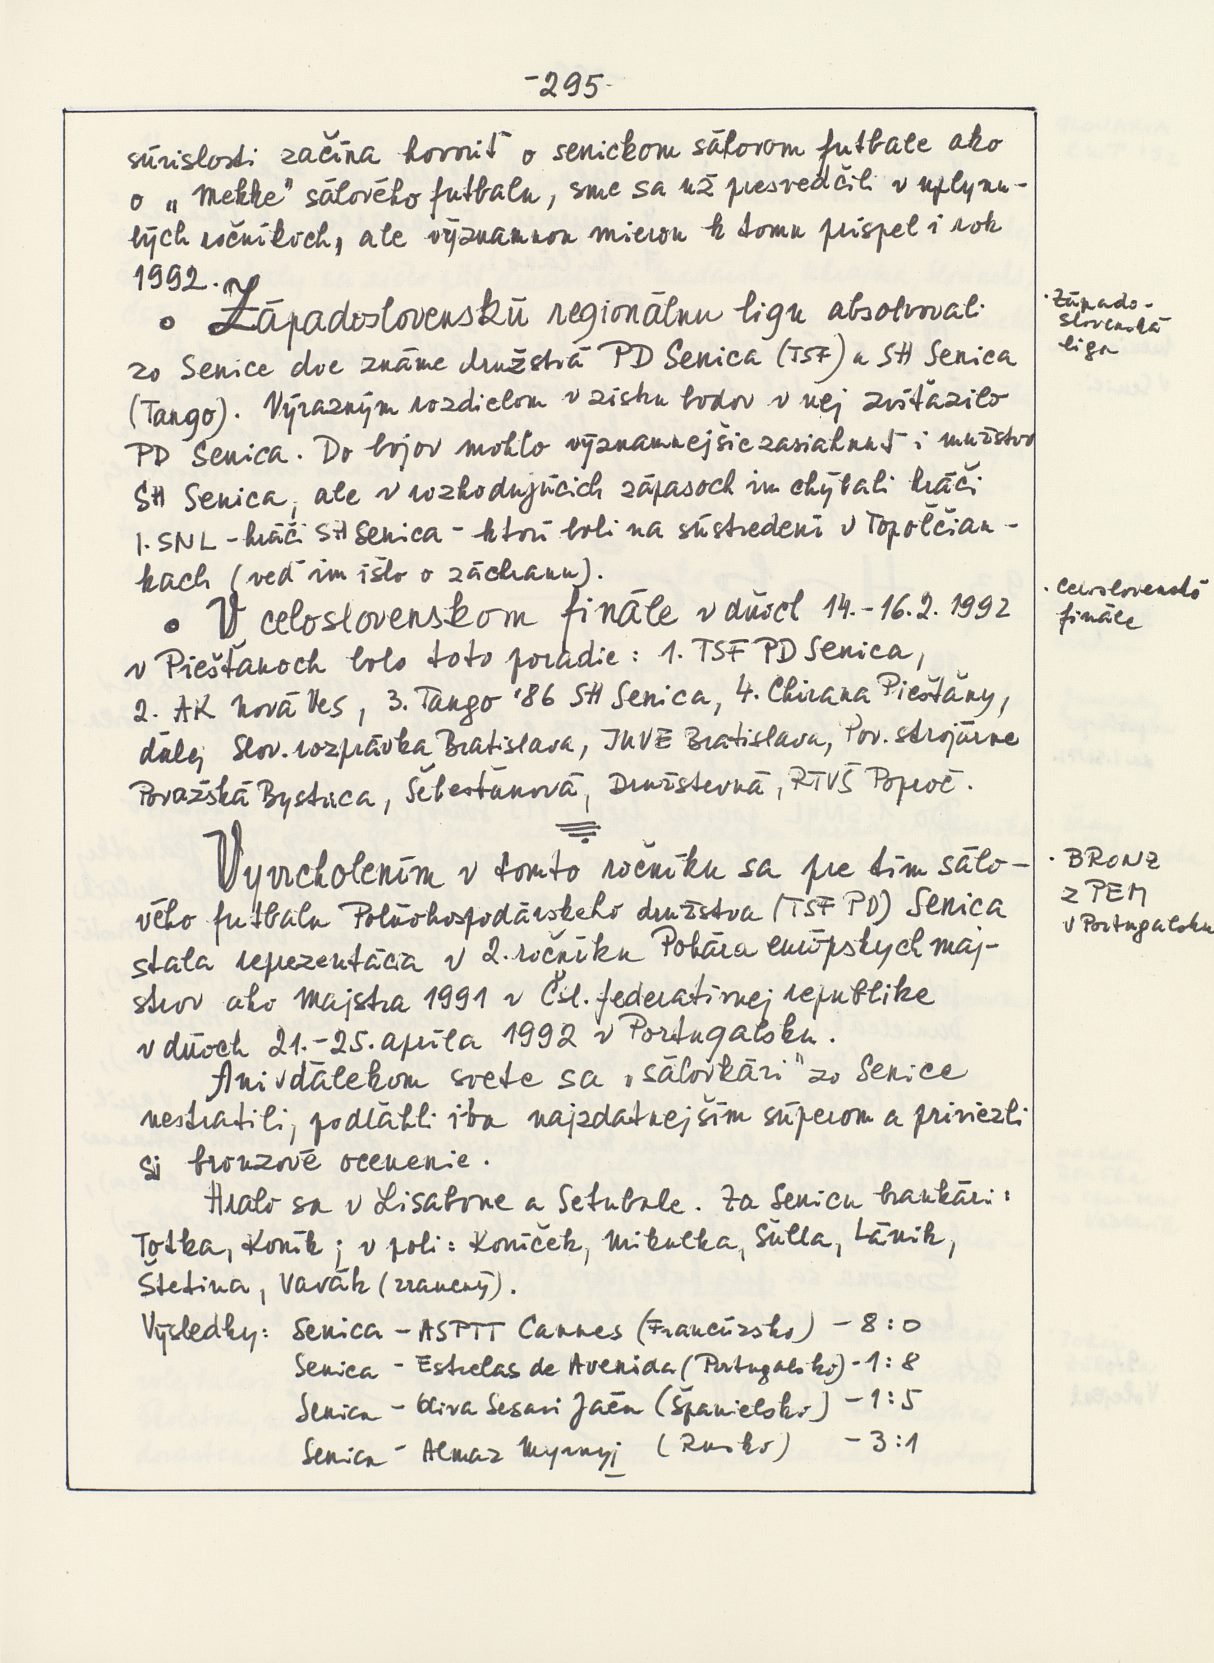 -295-
súvislosti začína hovoriť o senickom sálovom futbale ako
o „Mekke" sálového futbalu, sme sa už presvedčili v uplynu-
lých ročníkoch, ale významnou mierou k tomu prispel i rok
1992.
• Západoslovenskú regionálnu ligu absolvovali
zo Senice dve známe družstvá PD Senica (TSF) a SH Senica
(Tango). Výrazným rozdielom v zisku bodov v nej zvíťazilo
PD Senica. Do bojov mohlo významnejšie zasiahnuť i mužstvo
SH Senica, ale v rozhodujúcich zápasoch im chýbali hráči
1. SNL - hráči SH Senica - ktorí boli na sústredení v Topoľčian-
kach (veď im išlo o záchranu).
• V celoslovenskom finále v dňoch 14.-16.2. 1992
v Piešťanoch bolo toto poradie: 1. TSF PD Senica,
2. AK Nová Ves, 3. Tango '86 SH Senica, 4. Chirana Piešťany,
ďalej Slov. rozprávka Bratislava, INVE Bratislava, Pov. strojárne
Považská Bystrica, Šebešťanová, Družstevná, RTVŠ Poproč.
Vyvrcholením v tomto ročníku sa pre tím sálo-
vého futbalu Poľnohospodárskeho družstva (TSF PD) Senica
stala reprezentácia v 2. ročníku Pohára európskych maj-
strov ako majstra 1991 v Čsl. federatívnej republike
v dňoch 21.-25. apríla 1992 v Portugalsku.
Ani v ďalekom svete sa „sálovkári" zo Senice
nestratili, podľahli iba najzdatnejším súperom a priviezli
si bronzové ocenenie.
Hralo sa v Lisabone a Setubale. Za Senicu brankári:
Totka, Koník; v poli: Koníček, Mikulka, Šulla, Lánik,
Štetina, Vavák (zranený).
Výsledky: Senica - ASPTT Cannes (Francúzsko) - 8:0
Senica - Estrelas de Avenida (Portugalsko) - 1:8
Senica - Oliva Sesari Jaén (Španielsko) - 1:5
Senica - Almaz Myrnyj (Rusko) - 3:1
• Západo-
slovenská
liga
• Celoslovenské
finále
• BRONZ
z PEM
v Portugalsku